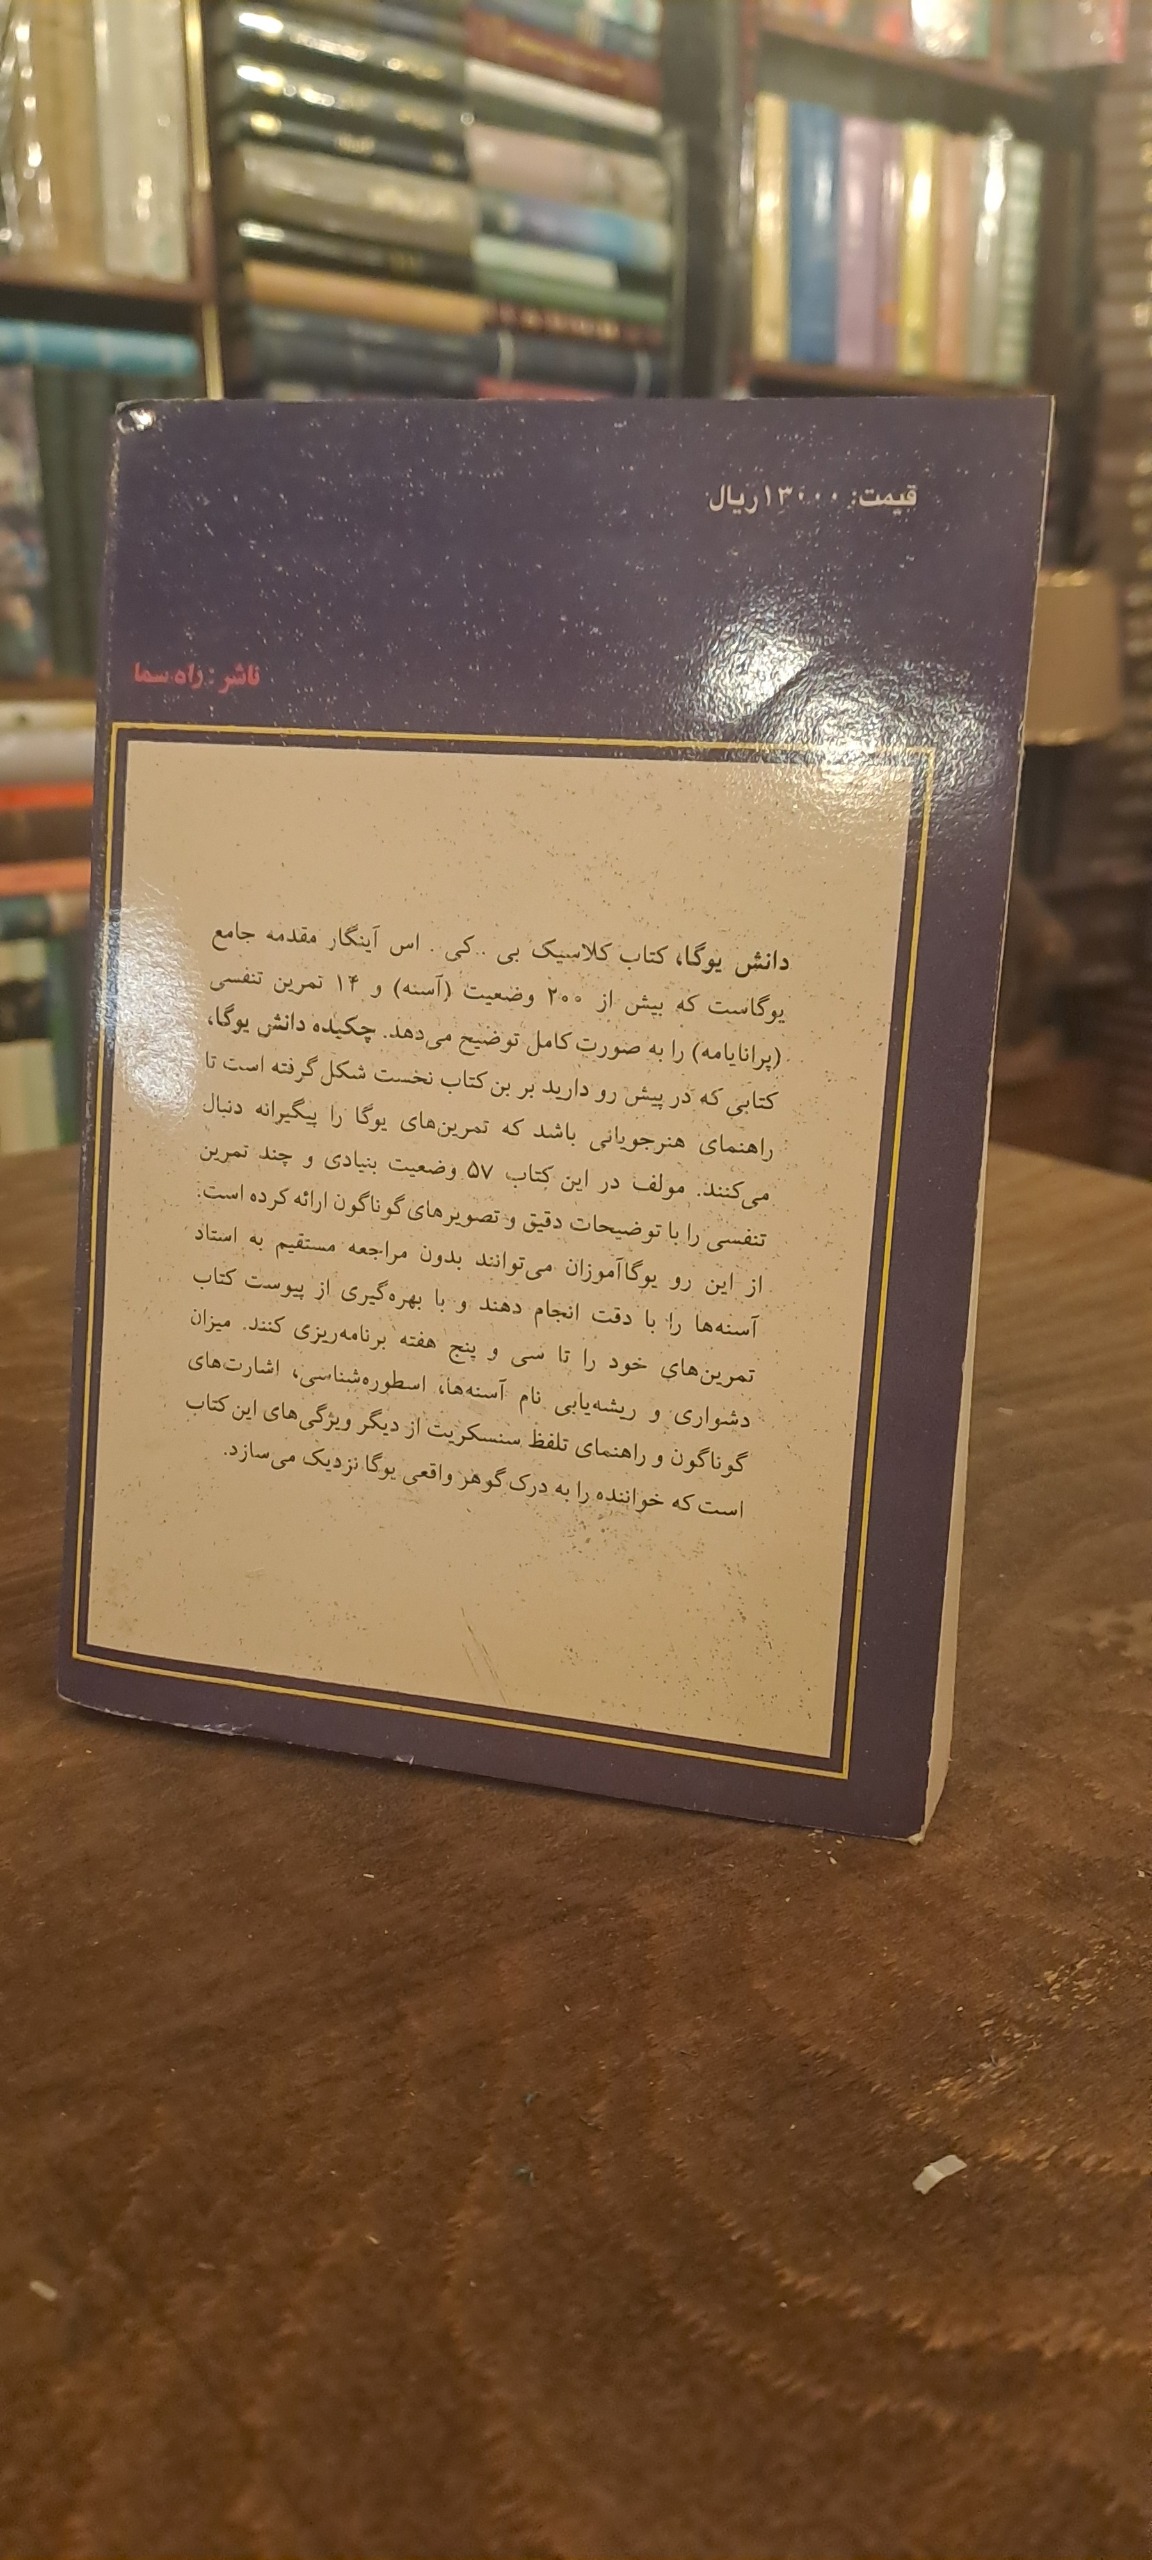 قیمت: ۱۳۰۰۰ ریال
ناشر: راه سما
دانش یوگا، کتاب کلاسیک بی . کی . اس آینگار مقدمه جامع
یوگاست که بیش از ۲۰۰ وضعیت (آسنه) و ۱۴ تمرین تنفسی
(پرانایامه) را به صورت کامل توضیح می‌دهد. چکیده دانش یوگا،
کتابی که در پیش رو دارید بر بن کتاب نخست شکل گرفته است تا
راهنمای هنرجویانی باشد که تمرین‌های یوگا را پیگیرانه دنبال
می‌کنند. مولف در این کتاب ۵۷ وضعیت بنیادی و چند تمرین
تنفسی را با توضیحات دقیق و تصویرهای گوناگون ارائه کرده است.
از این رو یوگاآموزان می‌توانند بدون مراجعه مستقیم به استاد
آسنه‌ها را با دقت انجام دهند و با بهره‌گیری از پیوست کتاب
تمرین‌های خود را تا سی و پنج هفته برنامه‌ریزی کنند. میزان
دشواری و ریشه‌یابی نام آسنه‌ها، اسطوره‌شناسی، اشارت‌های
گوناگون و راهنمای تلفظ سنسکریت از دیگر ویژگی‌های این کتاب
است که خواننده را به درک گوهر واقعی یوگا نزدیک می‌سازد.